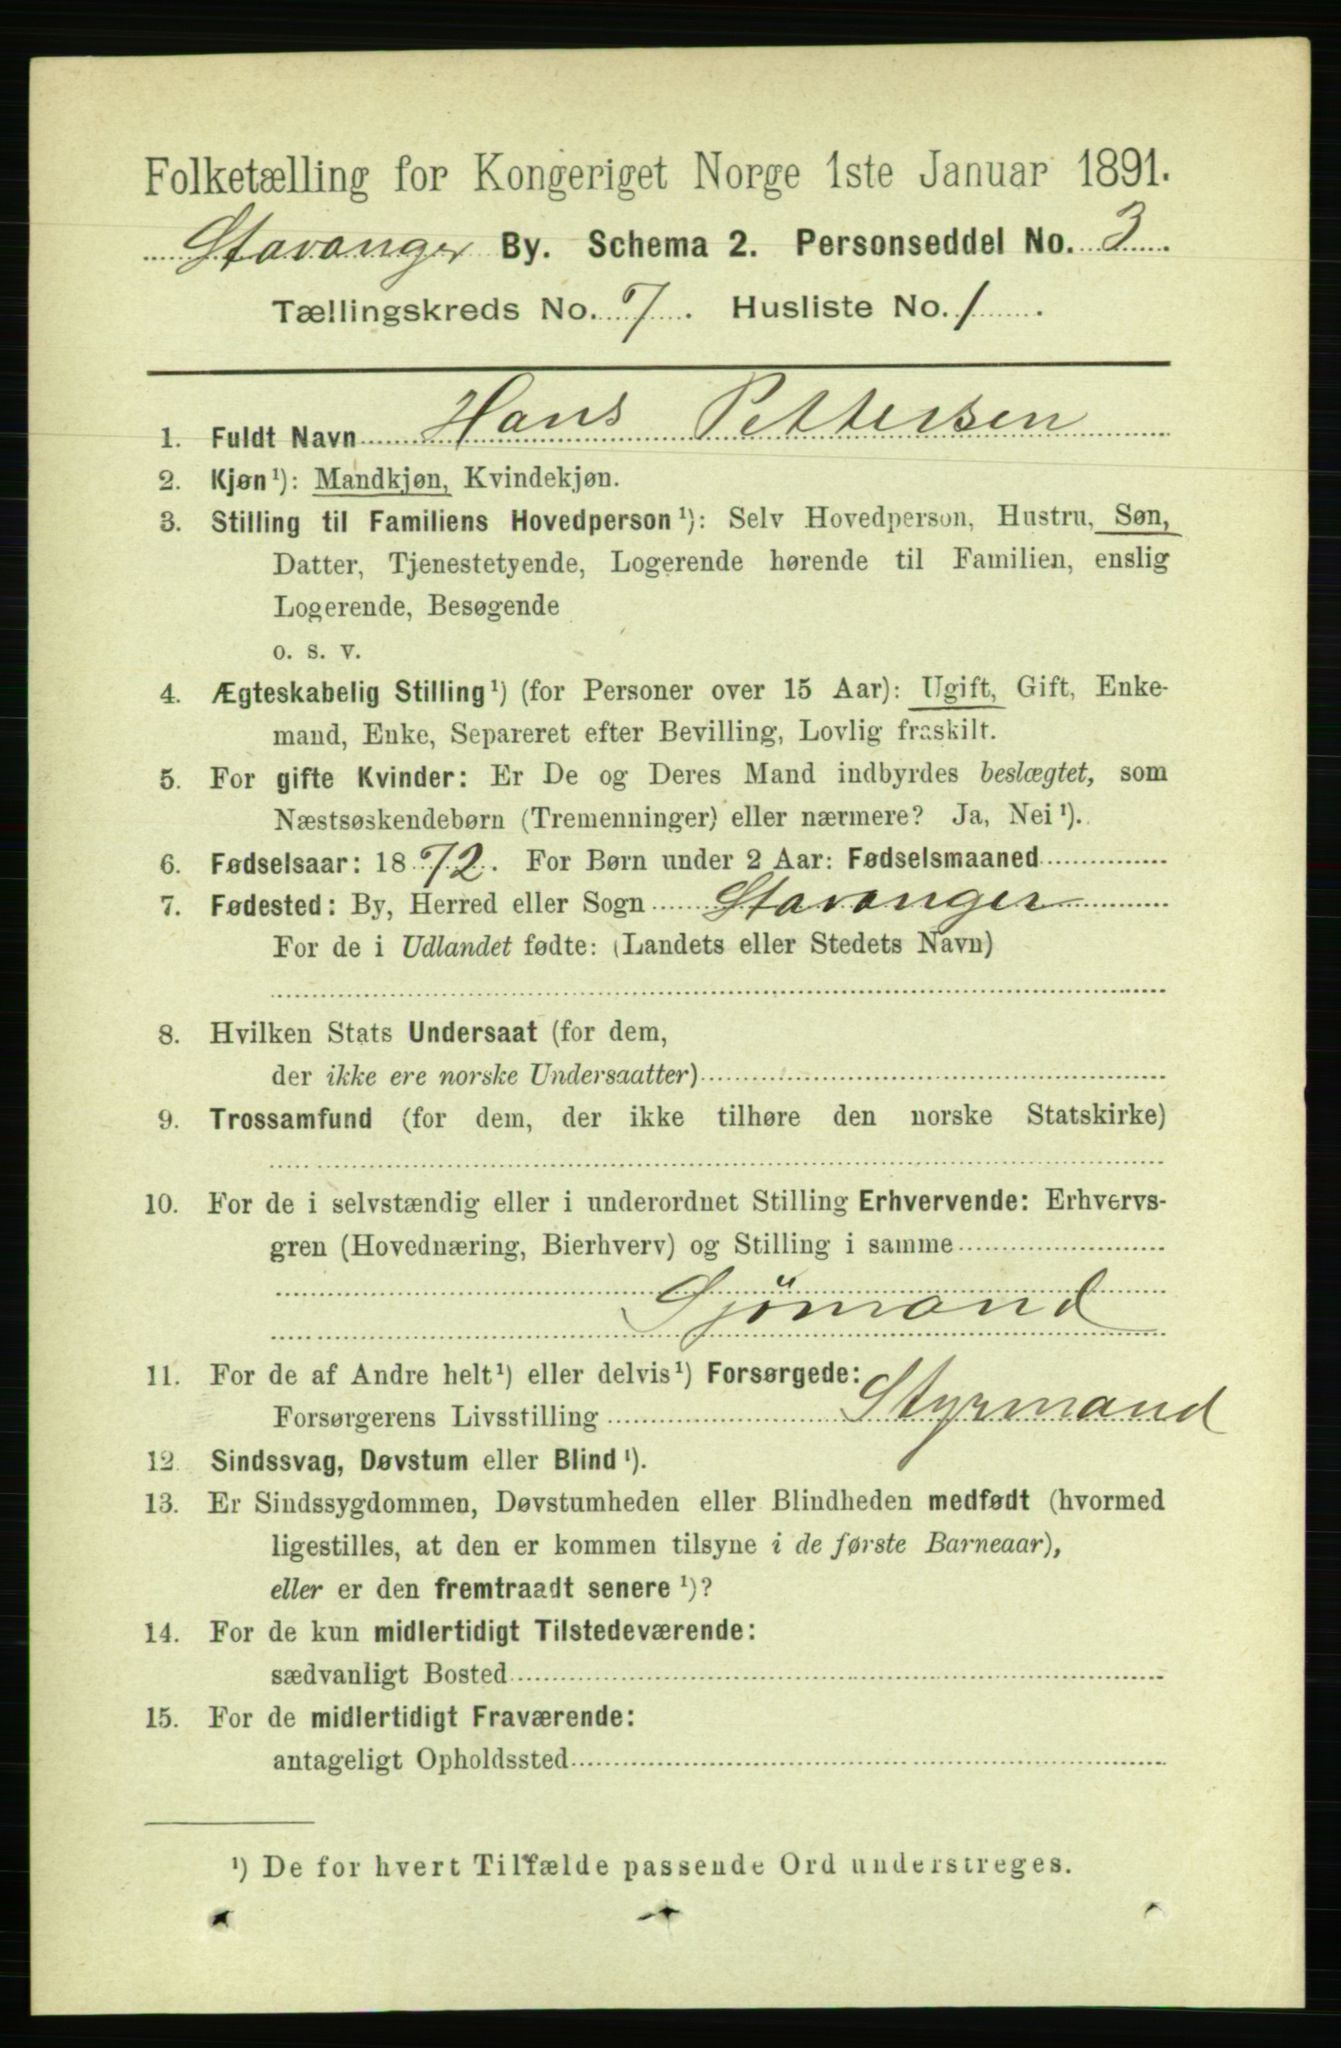 Folketælling for Kongeriget Norge 1ste Januar 1891.
Stavanger By. Schema 2. Personseddel No. 3.
Tællingskreds No. 7. Husliste No. 1.
1. Fuldt Navn Hans Pettersen
2. Kjøn¹): Mandkjøn, Kvindekjøn.
3. Stilling til Familiens Hovedperson¹): Selv Hovedperson, Hustru, Søn,
Datter, Tjenestetyende, Logerende hørende til Familien, enslig
Logerende, Besøgende
o. s. v.
4. Ægteskabelig Stilling¹) (for Personer over 15 Aar): Ugift, Gift, Enke-
mand, Enke, Separeret efter Bevilling, Lovlig fraskilt.
5. For gifte Kvinder: Er De og Deres Mand indbyrdes beslægtet, som
Næstsøskendebørn (Tremenninger) eller nærmere? Ja, Nei¹).
6. Fødselsaar: 1872. For Børn under 2 Aar: Fødselsmaaned
7. Fødested: By, Herred eller Sogn Stavanger
For de i Udlandet fødte: (Landets eller Stedets Navn)
8. Hvilken Stats Undersaat (for dem,
der ikke ere norske Undersaatter)
9. Trossamfund (for dem, der ikke tilhøre den norske Statskirke)
10. For de i selvstændig eller i underordnet Stilling Erhvervende: Erhvervs-
gren (Hovednæring, Bierhverv) og Stilling i samme
Sjömand
11. For de af Andre helt¹) eller delvis¹) Forsørgede:
Forsørgerens Livsstilling Styrmand
12. Sindssvag, Døvstum eller Blind¹).
13. Er Sindssygdommen, Døvstumheden eller Blindheden medfødt (hvormed
ligestilles, at den er kommen tilsyne i de første Barneaar),
eller er den fremtraadt senere¹)?
14. For de kun midlertidigt Tilstedeværende:
sædvanligt Bosted
15. For de midlertidigt Fraværende:
antageligt Opholdssted
¹) De for hvert Tilfælde passende Ord understreges.